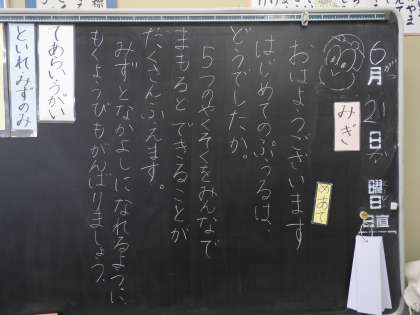 6月がつ
21日
か
曜日
日直
みぎ
めあて
おはようございます
はじめてのぷうるは、
どうでしたか。
5つのやくそくをみんなで
まもるとできることが
たくさんふえます。
みずとなかよしになれるように
もくようびもがんばりましょう。
てあらいうがい
といれみずのみ